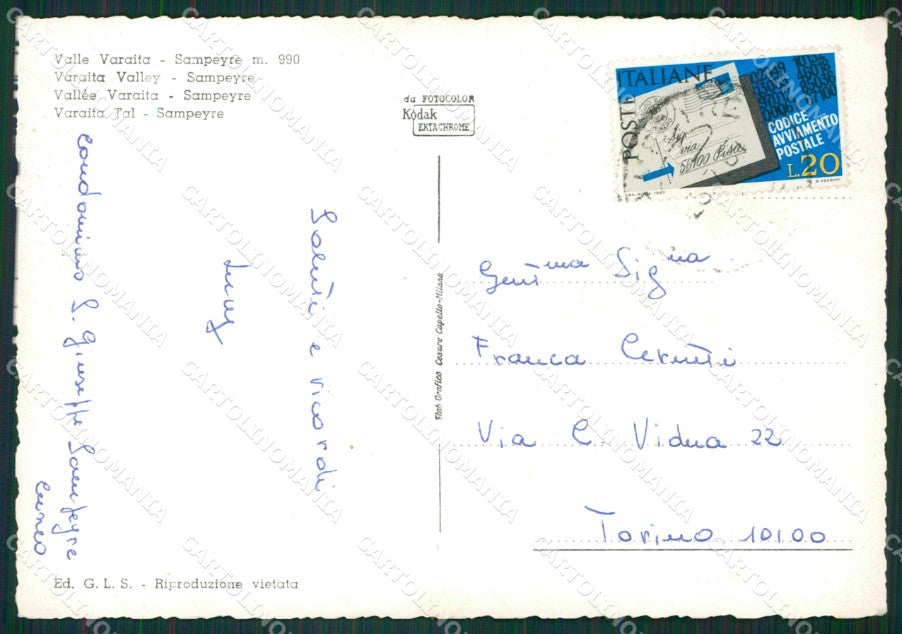 Valle Varaita - Sampeyre m. 990
Varaita Valley - Sampeyre
Vallée Varaita - Sampeyre
Varaita Tal - Sampeyre
da FOTOCOLOR
Kodak
EKTACHROME
POSTE ITALIANE
56100 Pisa
CODICE
AVVIAMENTO
POSTALE
L.20
Saluti e ricordi
condominio S. Giuseppe Sampeyre
Cuneo
Stab. Grafico Cesare Capello-Milano
Gent.ma Sig.na
Franca Cerutti
Via C. Vidua 22
Torino 10100
Ed. G. L. S. - Riproduzione vietata
CARTOLINOMANIA